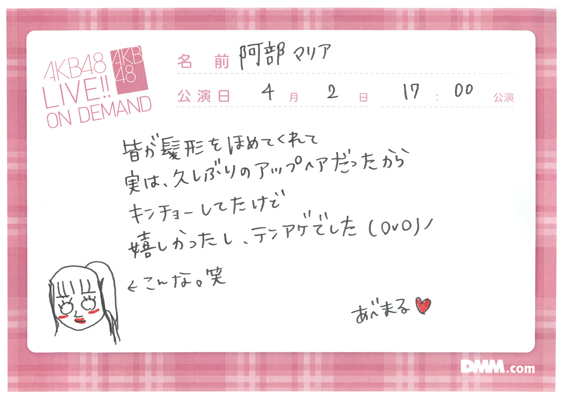 AKB48
LIVE!!
ON DEMAND
AKB
48
名前 阿部マリア
公演日 4月2日 17:00公演
皆が髪形をほめてくれて
実は、久しぶりのアップヘアだったから
キンチョーしてたけど
嬉しかったし、テンアゲでした(OvO)ノ
←こんな。笑
あべまる
DMM.com